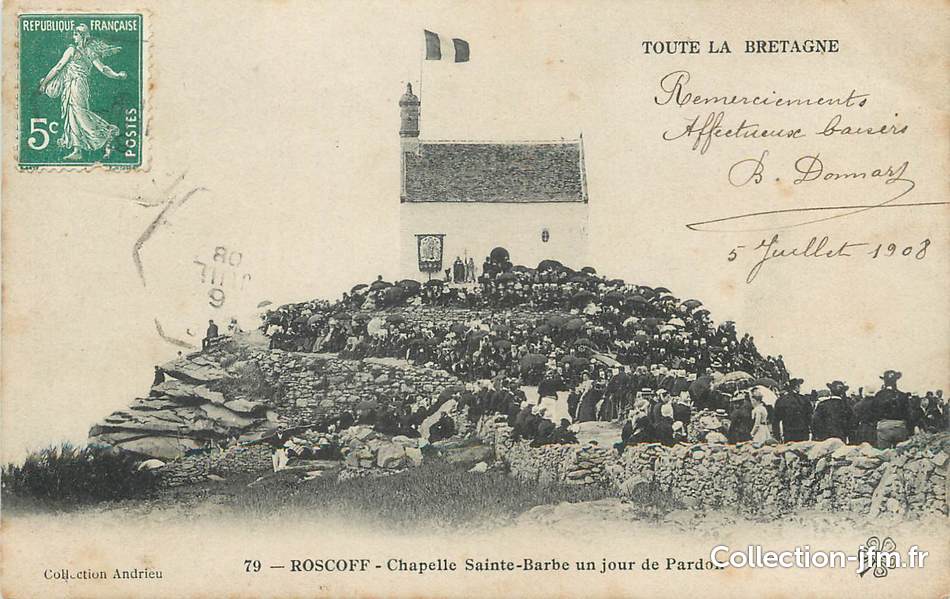 REPUBLIQUE FRANÇAISE
5c
POSTES
TOUTE LA BRETAGNE
Remerciements
Affectueux baisers
B. Donnart
5 Juillet 1908
6
JUIL
08
79 — ROSCOFF - Chapelle Sainte-Barbe un jour de Pardon
Collection Andrieu
Collection-jfm.fr